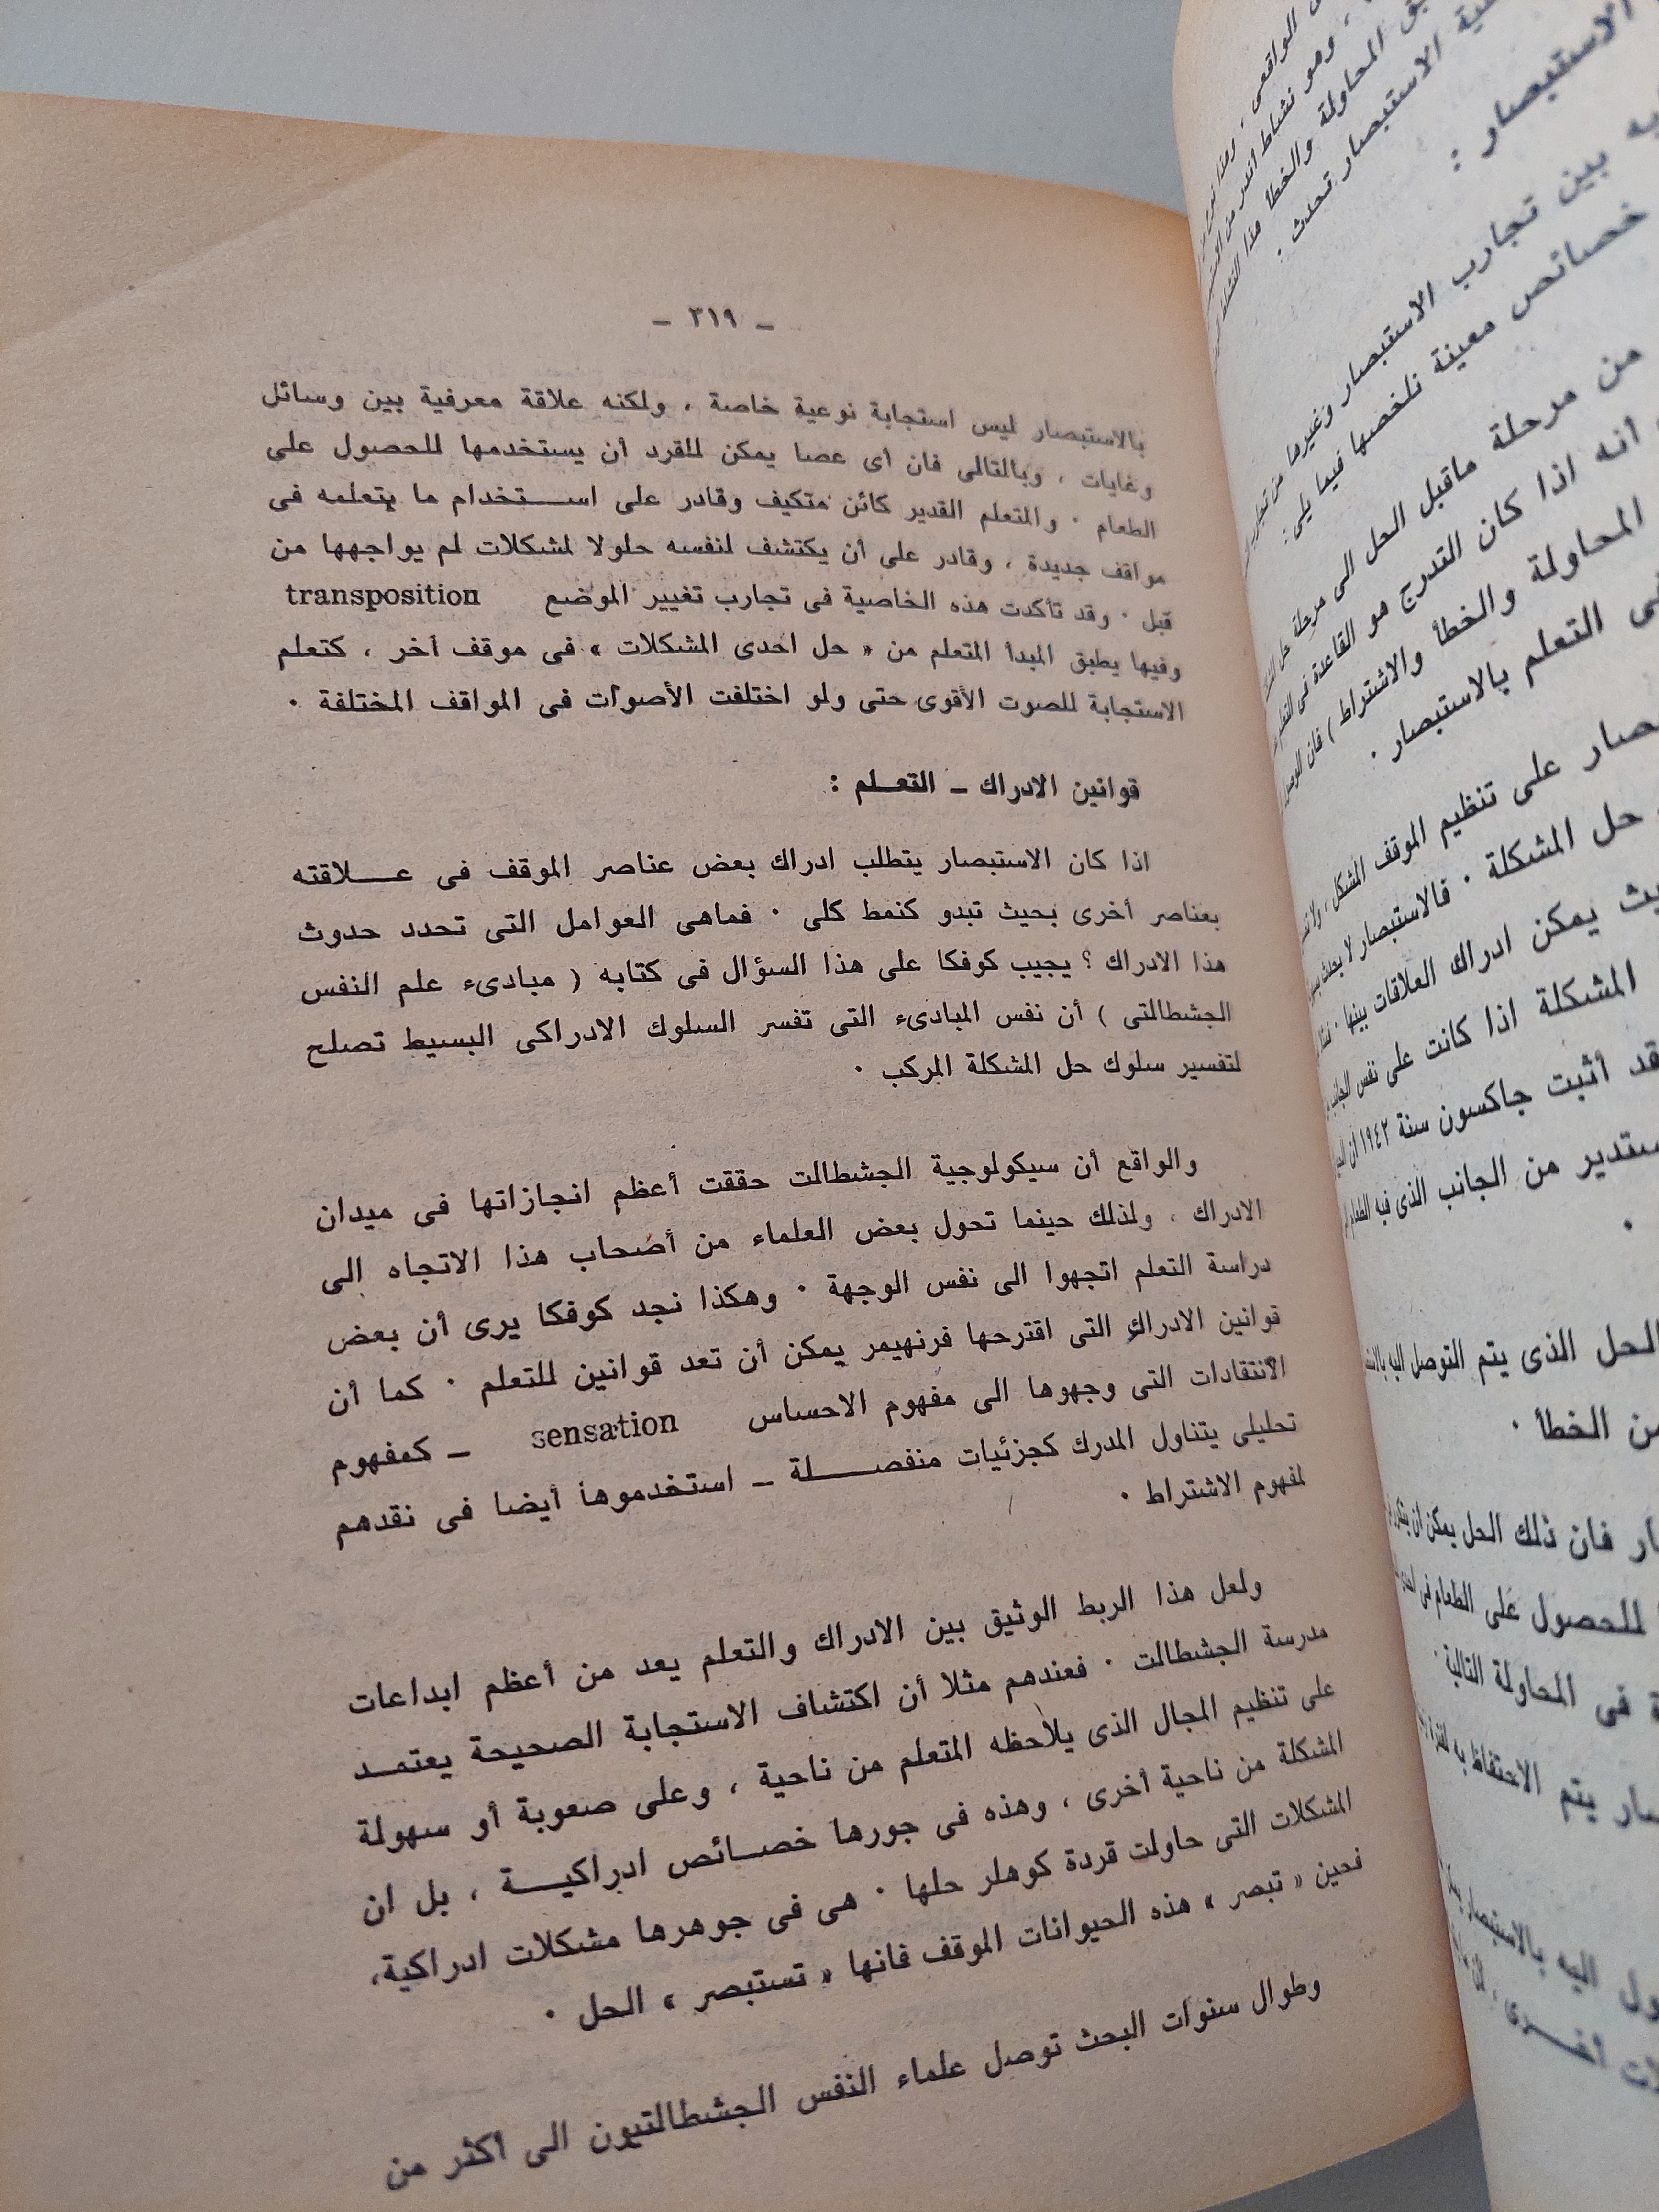 ـ ٣١٩ ـ
بالاستبصار ليس استجابة نوعية خاصة ، ولكنه علاقة معرفية بين وسائل
وغايات ، وبالتالى فان أى عصا يمكن للقرد أن يستخدمها للحصول على
الطعام · والمتعلم القدير كائن متكيف وقادر على اســتخدام ما يتعلمه فى
مواقف جديدة ، وقادر على أن يكتشف لنفسه حلولا لمشكلات لم يواجهها من
قبل · وقد تأكدت هذه الخاصية فى تجارب تغيير الموضع transposition
وفيها يطبق المبدأ المتعلم من « حل احدى المشكلات » فى موقف آخر ، كتعلم
الاستجابة للصوت الأقوى حتى ولو اختلفت الأصوات فى المواقف المختلفة ·
قوانين الادراك ـ التعـلم :
اذا كان الاستبصار يتطلب ادراك بعض عناصر الموقف فى عــلاقته
بعناصر أخرى بحيث تبدو كنمط كلى · فماهى العوامل التى تحدد حدوث
هذا الادراك ؟ يجيب كوفكا على هذا السؤال فى كتابه ( مبادىء علم النفس
الجشطالتى ) أن نفس المبادىء التى تفسر السلوك الادراكى البسيط تصلح
لتفسير سلوك حل المشكلة المركب ·
والواقع أن سيكولوجية الجشطالت حققت أعظم انجازاتها فى ميدان
الادراك ، ولذلك حينما تحول بعض العلماء من أصحاب هذا الاتجاه الى
دراسة التعلم اتجهوا الى نفس الوجهة · وهكذا نجد كوفكا يرى أن بعض
قوانين الادراك التى اقترحها فرتهيمر يمكن أن تعد قوانين للتعلم · كما أن
الانتقادات التى وجهوها الى مفهوم الاحساس sensation ـ كمفهوم
تحليلى يتناول المدرك كجزئيات منفصــلة ـ استخدموها أيضا فى نقدهم
لمفهوم الاشتراط ·
ولعل هذا الربط الوثيق بين الادراك والتعلم يعد من أعظم ابداعات
مدرسة الجشطالت · فعندهم مثلا أن اكتشاف الاستجابة الصحيحة يعتمـد
على تنظيم المجال الذى يلاحظه المتعلم من ناحية ، وعلى صعوبة أو سهولة
المشكلة من ناحية أخرى ، وهذه فى جورها خصـائص ادراكيــة ، بل ان
المشكلات التى حاولت قردة كوهلر حلها · هى فى جوهرها مشكلات ادراكية،
فحين « تبصر » هذه الحيوانات الموقف فانها « تستبصر » الحل ·
وطوال سنوات البحث توصل علماء النفس الجشطالتيون الى أكثر من
الاستبصار :
بين تجارب الاستبصار وغيرها من
خصائص معينة نلخصها فيما يلى :
من مرحلة ماقبل الحل الى مرحلة حل
أنه اذا كان التدرج هو القاعدة فى التعلم
المحاولة والخطأ والاشتراط ) فان
التعلم بالاستبصار ·
على تنظيم الموقف المشكل ،
حل المشكلة · فالاستبصار لا يحدث
يمكن ادراك العلاقات بينها ·
المشكلة اذا كانت على نفس الجانب
أثبت جاكسون سنة ١٩٤٢ أن
من الجانب الذى فيه الطعام
الحل الذى يتم التوصل اليه
من الخطأ ·
فان ذلك الحل يمكن أن
للحصول على الطعام فى
فى المحاولة التالية ·
يتم الاحتفاظ به
اليه بالاستبصار